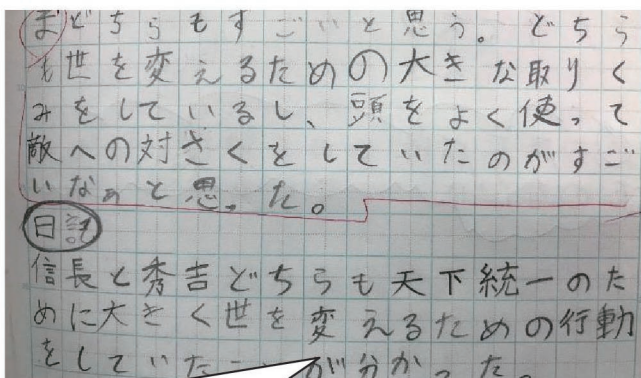 まどちらもすごいと思う。どちら
も世を変えるための大きな取りく
みをしているし、頭をよく使って
敵への対さくをしていたのがすご
いなぁと思った。
日記
信長と秀吉どちらも天下統一のた
めに大きく世を変えるための行動
をしていたこが分かった。